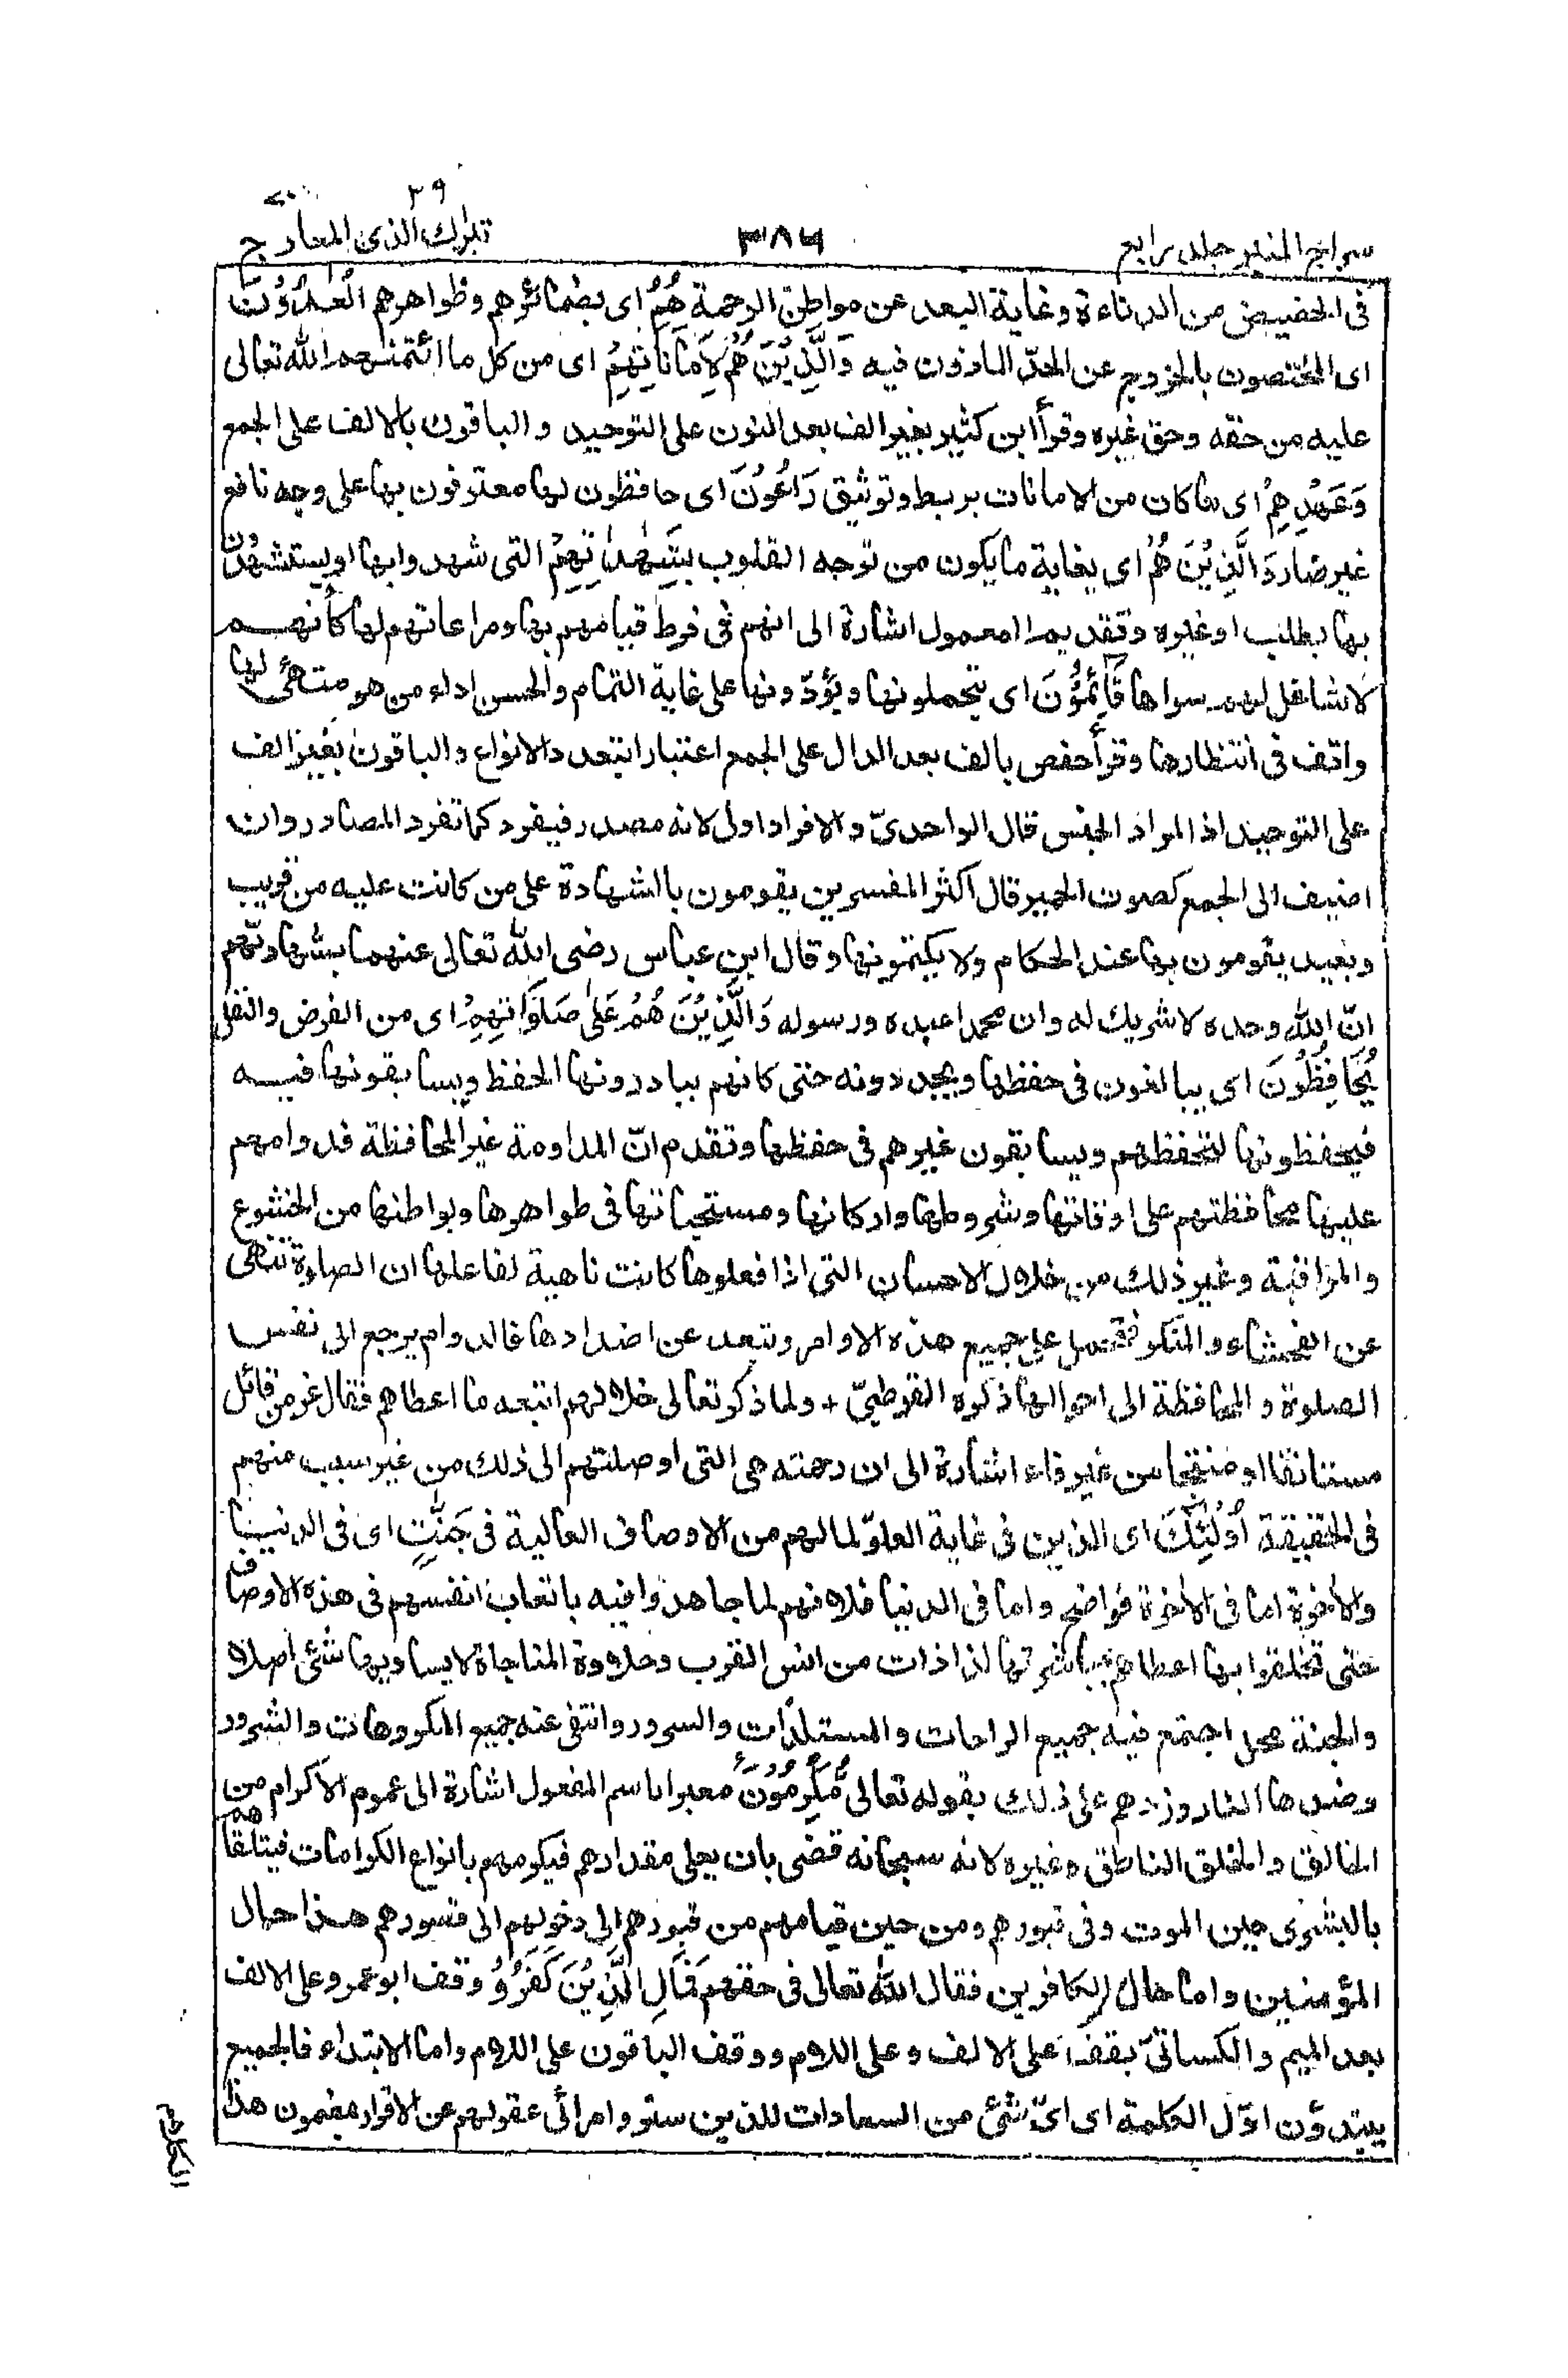 ٢٩ ٧٠
سراج المنير جلد رابع ٣٨٦ تبرك الذى المعارج
فى الحضيض من الدناءة وغاية البعد عن مواطن الرحمة هُمُ اى بضمائرهم وظواهرهم الْعٰدُوْنَ
اى المختصون بالخروج عن الحدّ الماذون فيه وَالَّذِيْنَ هُمْ لِاَمَانَاتِهِمْ اى من كل ما ائتمنهم الله تعالى
عليه من حقه وحق غيره وقرأ ابن كثير بغير الف بعد النون على التوحيد والباقون بالالف على الجمع
وَعَهْدِهِمْ اى ما كان من الامانات بربط وتوثيق رَاعُوْنَ اى حافظون لها معترفون بها على وجه نافع
غير ضار وَالَّذِيْنَ هُمْ اى بغاية ما يكون من توجه القلوب بِشَهٰدٰتِهِمْ التى شهدوا بها او يستشهدون
بها بطلب او غيره وتقديم المعمول اشارة الى انهم فى فرط قيامهم بها ومراعاتهم لها كأنهم
لا شاغل لهم سواها قَآئِمُوْنَ اى يتحملونها ويؤدّونها على غاية التمام والحسن اداء من هو متهئ لها
واقف فى انتظارها وقرأ حفص بالف بعد الدال على الجمع اعتبارا بتعدد الانواع والباقون بغير الف
على التوحيد اذ المراد الجنس قال الواحدىّ والافراد اولى لانه مصدر فيفرد كما تفرد المصادر وان
اضيف الى الجمع كصوت الحمير قال اكثر المفسرين يقومون بالشهادة على من كانت عليه من قريب
وبعيد يقومون بها عند الحكام ولا يكتمونها وقال ابن عباس رضى الله تعالى عنهما بشهادتهم
انّ الله وحده لا شريك له وان محمدا عبده ورسوله وَالَّذِيْنَ هُمْ عَلٰى صَلَوَاتِهِمْ اى من الفرض والنفل
يُحَافِظُوْنَ اى يبالغون فى حفظها ويجددونه حتى كانهم يبادرونها الحفظ ويسابقونها فيه
فيحفظونها لتحفظهم ويسابقون غيرهم فى حفظها وتقدم انّ المداومة غير المحافظة فدوامهم
عليها محافظتهم على اوقاتها وشروطها واركانها ومستحباتها فى ظواهرها وبواطنها من الخشوع
والمراقبة وغير ذلك من خلال الاحسان التى اذا فعلوها كانت ناهية لفاعلها ان الصلوة تنهى
عن الفحشاء والمنكر فتحمل على جميع هذه الاوامر وتبعد عن اضدادها فالدوام يرجع الى نفس
الصلوة والمحافظة الى احوالها ذكره القرطبىّ + ولما ذكر تعالى خلالهم اتبعه ما اعطاهم فقال عز من قائل
مستانفا او منتجا من غير فاء اشارة الى ان رحمته هى التى اوصلتهم الى ذلك من غير سبب منهم
فى الحقيقة اُولٰٓئِكَ اى الذين فى غاية العلوّ لما لهم من الاوصاف العالية فى جَنّٰتٍ اى فى الدنيا
والأخرة اما فى الأخرة فواضح واما فى الدنيا فلانهم لما جاهدوا فيه باتعاب انفسهم فى هذه الاوصاف
حتى تخلقوا بها اعطاهم بمباشرتها لذاذات من انس القرب وحلاوة المناجاة لا يساويها شئ اصلا
والجنة محل اجتمع فيه جميع الراحات والمستلذّات والسرور وانتفى عنه جميع المكروهات والشرور
وضدها النار وزادهم على ذلك بقوله تعالى مُّكْرَمُوْنَ معبرا باسم المفعول اشارة الى عموم الاكرام من
الخالق والخلق الناطق وغيره لانه سبحانه قضى بان يعلى مقدارهم فيكرمهم بانواع الكرامات فيتلقاهم
بالبشرى حين الموت وفى قبورهم ومن حين قيامهم من قبورهم الى دخولهم الى قصورهم هذا حال
المؤمنين واما حال الكافرين فقال الله تعالى فى حقهم فَمَالِ الَّذِيْنَ كَفَرُوْ وقف ابو عمرو على الالف
بعد الميم والكسائىّ يقف على الالف وعلى اللام ووقف الباقون على اللام واما الابتداء فالجميع
يبتدؤن اوّل الكلمة اى اىّ شئ من السعادات للذين ستروا مرائى عقولهم عن الاقرار بمضمون هذا
الكلام